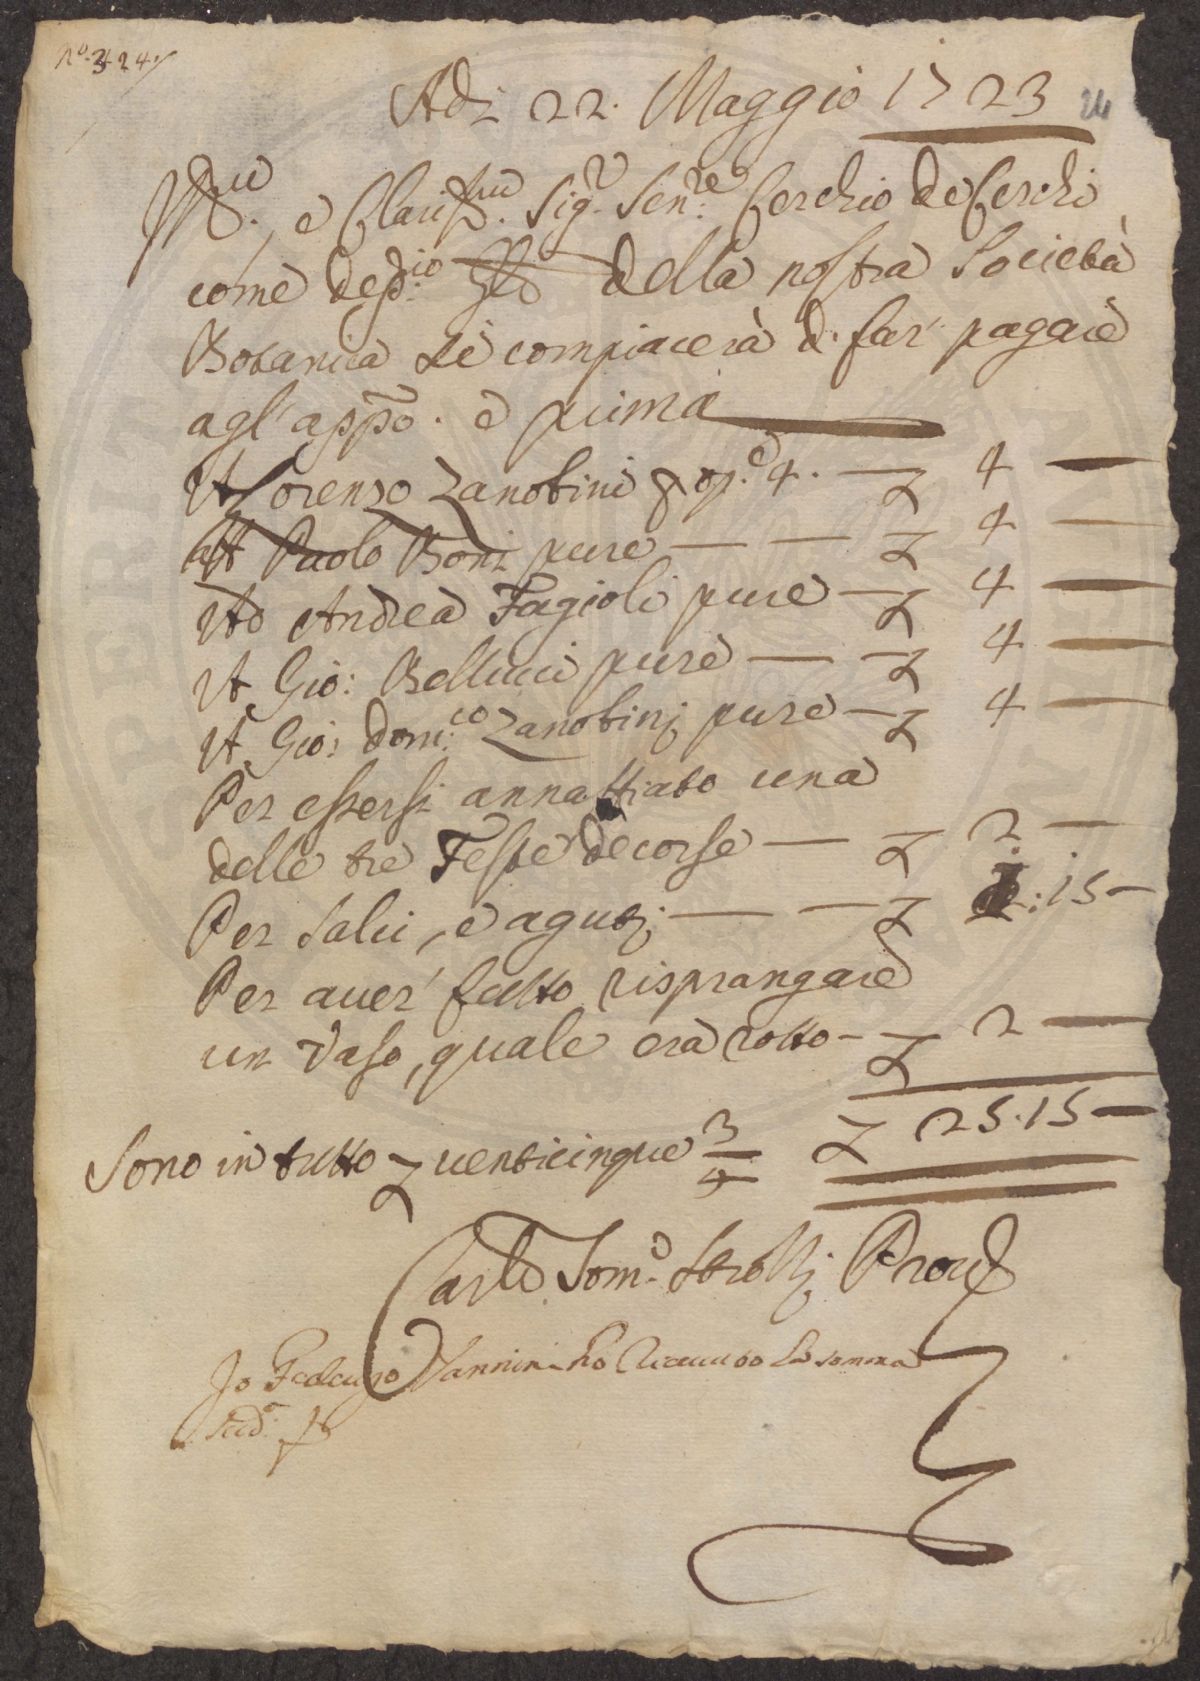 N.o 324.
Adi 22. Maggio 1723
24
Ill.mo e Clariss.mo Sig.r Sen.re Cerchio de Cerchi
come dep.rio della nostra Società
Botanica si compiacerà di far' pagare
agl'app.o e prima
A Lorenzo Zanobini p op.e 4. — £ 4 —
A Paolo Boni pure — — £ 4 —
Ad Andrea Fagioli pure — £ 4 —
A Gio: Bellucci pure — £ 4 —
A Gio: Dom.co Zanobinj pure — £ 4 —
Per essersi annaffiato una
delle tre Feste decorse — £ 2 —
Per salci, e agutj — — £ 1:15 —
Per aver' fatto risprangare
un vaso, quale era rotto — £ 2 —
£ 25.15 —
Sono in tutto £ venticinque 3/4
Carlo Tom.o Strozzj Prov.e
Io Vannini ho riceuuto la somma
sud.a